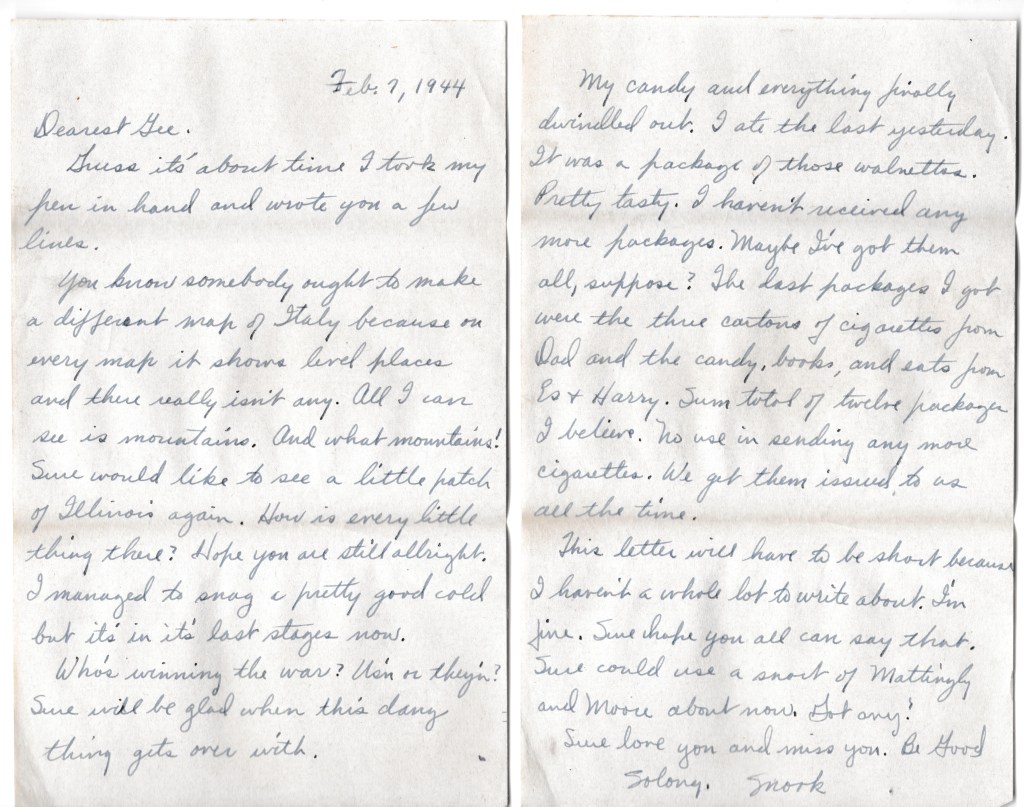 Feb. 7, 1944
Dearest Gee.
Guess it's about time I took my
pen in hand and wrote you a few
lines.
You know somebody ought to make
a different map of Italy because on
every map it shows level places
and there really isn't any. All I can
see is mountains. And what mountains!
Sure would like to see a little patch
of Illinois again. How is every little
thing there? Hope you are still allright.
I managed to snag a pretty good cold
but it's in it's last stages now.
Who's winning the war? Us'n or they'n?
Sure will be glad when this dang
thing gets over with.
My candy and everything finally
dwindled out. I ate the last yesterday.
It was a package of those walnettas.
Pretty tasty. I haven't received any
more packages. Maybe I've got them
all, suppose? The last packages I got
were the three cartons of cigarettes from
Dad and the candy, books, and eats from
Es & Harry. Sum total of twelve packages
I believe. No use in sending any more
cigarettes. We get them issued to us
all the time.
This letter will have to be short because
I haven't a whole lot to write about. I'm
fine. Sure hope you all can say that.
Sure could use a snort of Mattingly
and Moore about now. Got any?
Sure love you and miss you. Be Good
Solong. Snook